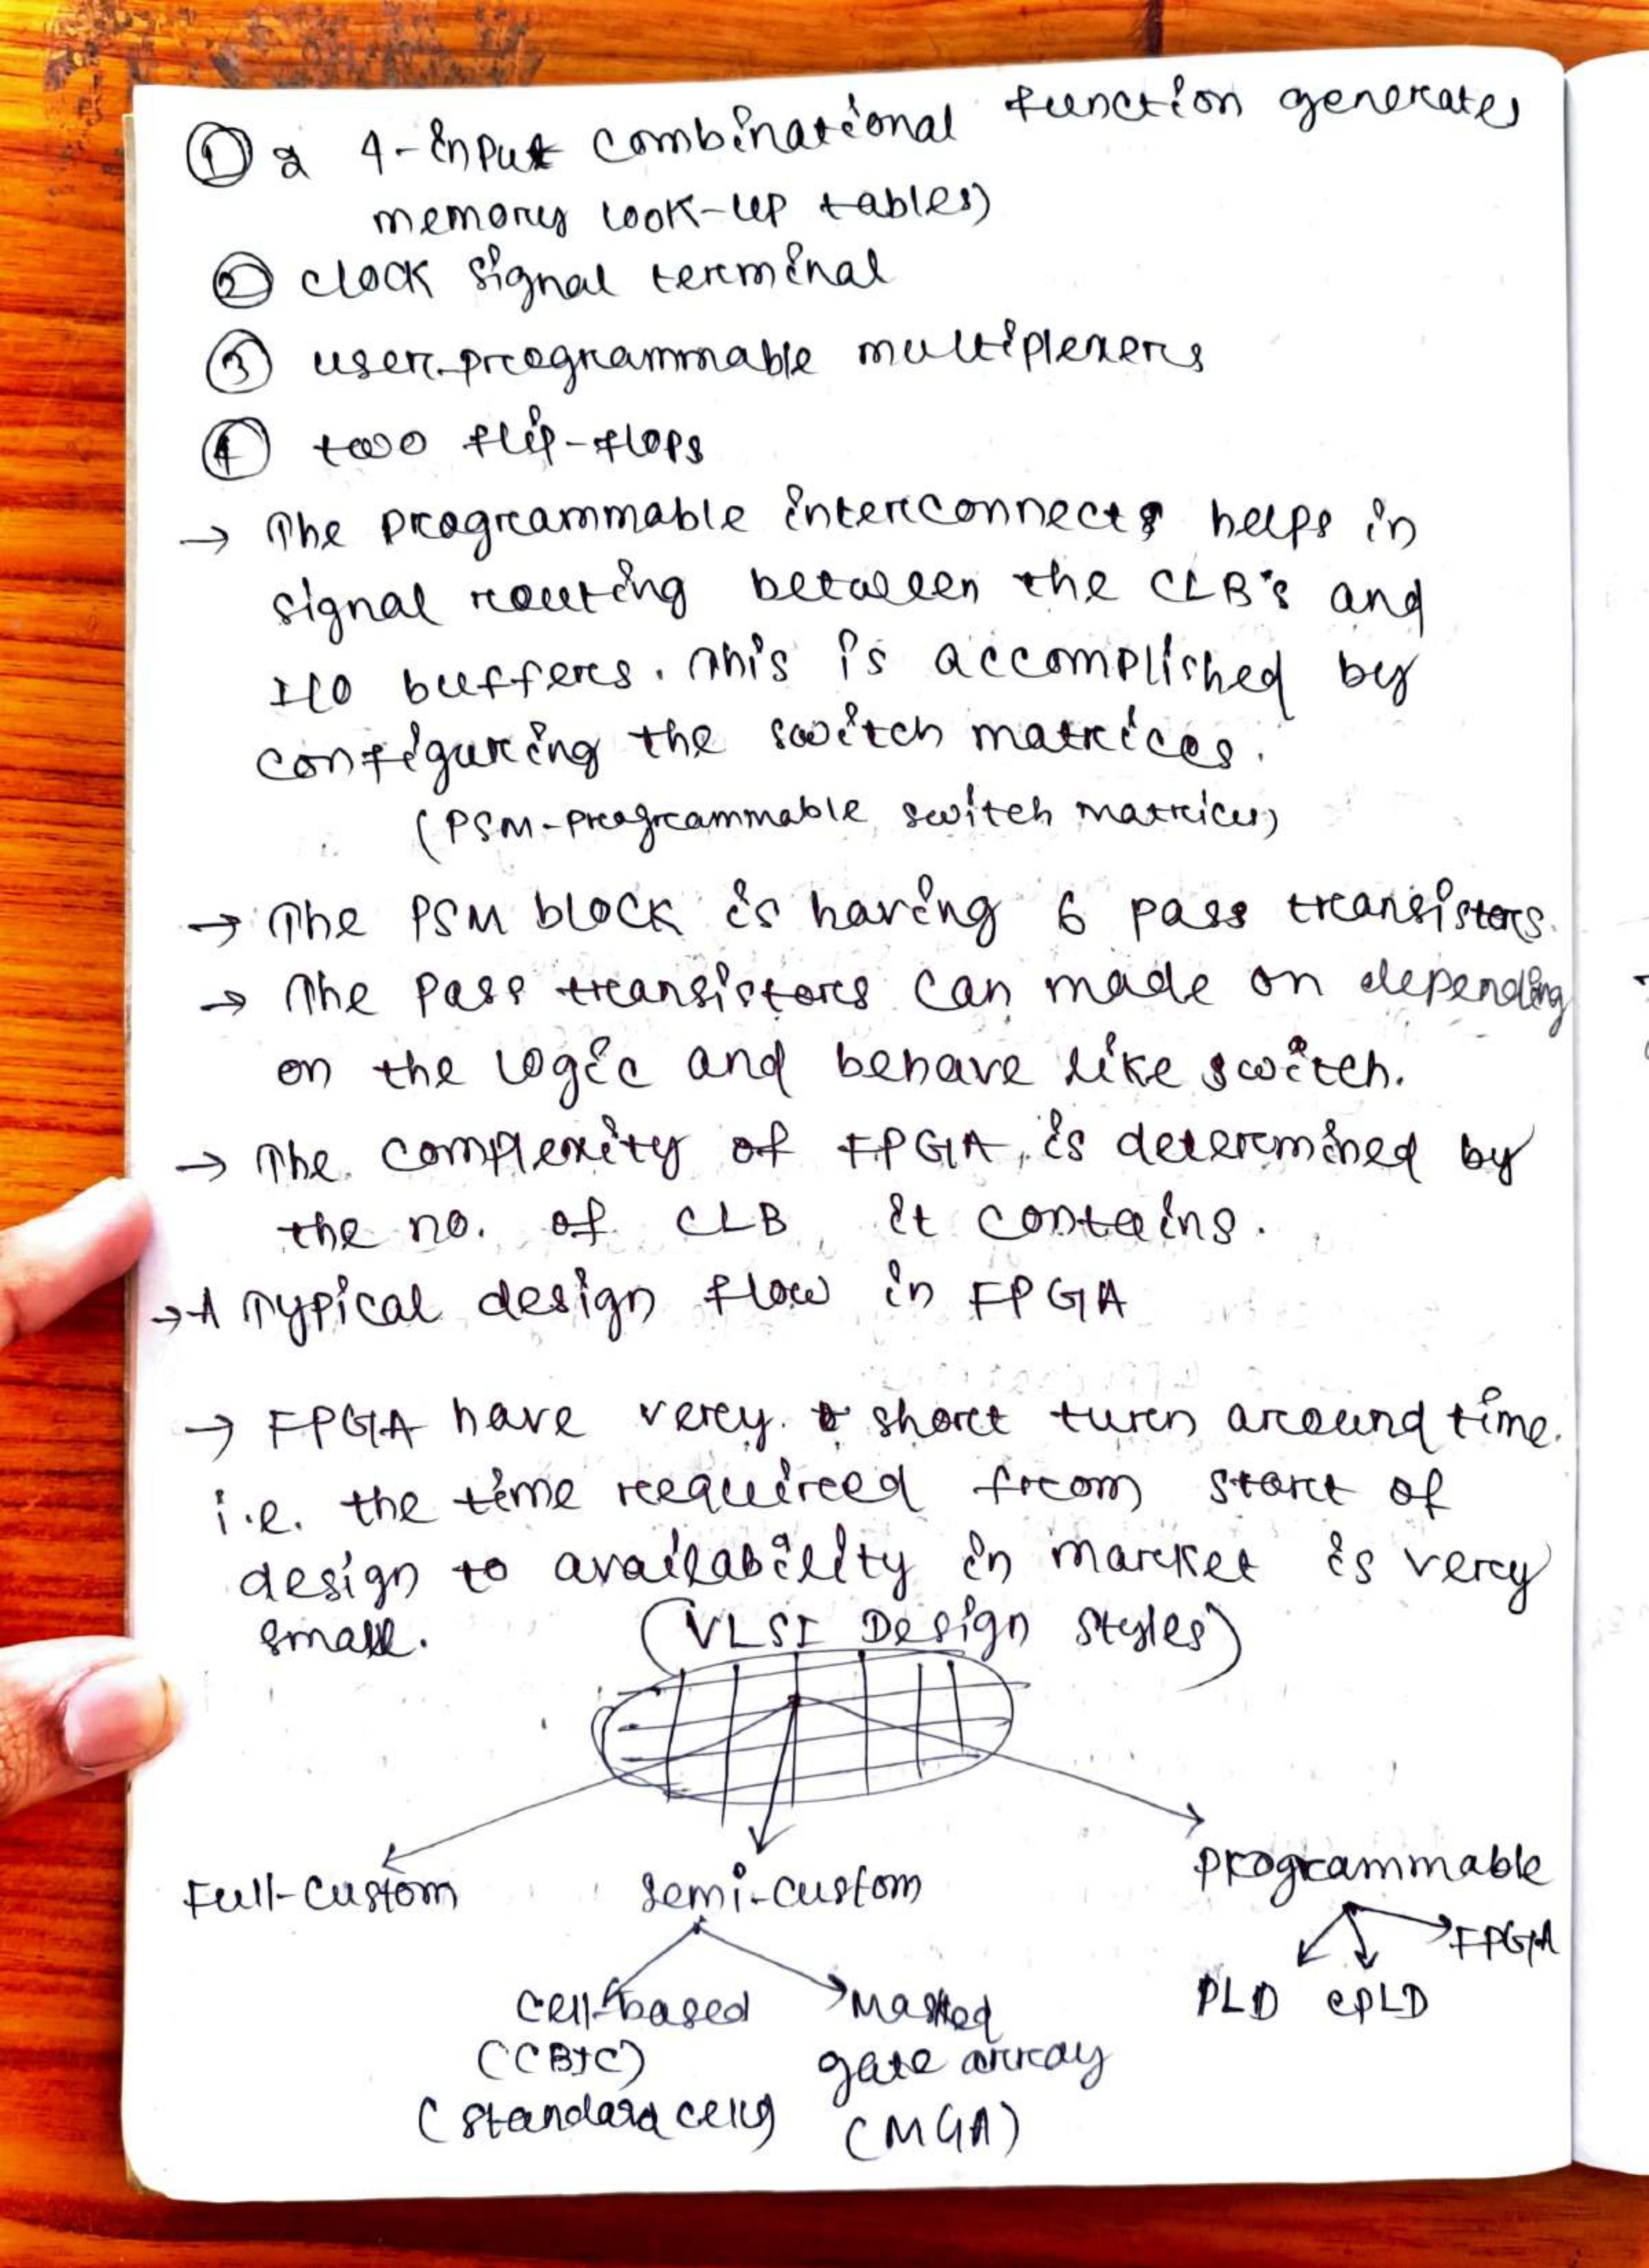 ① 2 4-input combinational function generates
memory look-up tables)
② clock signal terminal
③ user-programmable multiplexers
④ two flip-flops
→ The programmable interconnects helps in
signal routing between the CLB's and
I/O buffers. This is accomplished by
configuring the switch matrices.
(PSM-programmable switch matrices)
→ The PSM block is having 6 pass transistors.
→ The pass transistors can made on depending
on the logic and behave like switch.
→ The complexity of FPGA is determined by
the no. of CLB it contains.
→ A Typical design flow in FPGA
→ FPGA have very short turn around time.
i.e. the time required from start of
design to availability in market is very
small.
(VLSI Design Styles)
Full-custom semi-custom programmable
FPGA
PLD CPLD
Cell-based Masked
(CBIC) gate array
(standard cells) (MGA)